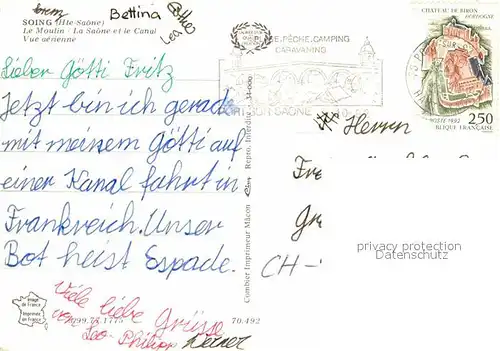 SOING (Hte-Saône)
Le Moulin - La Saône et le Canal
Vue aérienne
Bettina
Lea
Lieber Götti Fritz
Jetzt bin ich gerade
mit meinem Götti auf
einer Kanal fahrt in
Frankreich. Unser
Bot heist Espade.
Viele liebe Grüsse
von Leo Philipp
Image de France
Imprimée en France
70.492
Combier Imprimeur Mâcon
Repro. Interdite
PÊCHE.CAMPING
CARAVANING
CHATEAU DE BIRON
DORDOGNE
POSTE 1992
2,50
RÉPUBLIQUE FRANÇAISE
Herren
CH-
privacy protection
Datenschutz